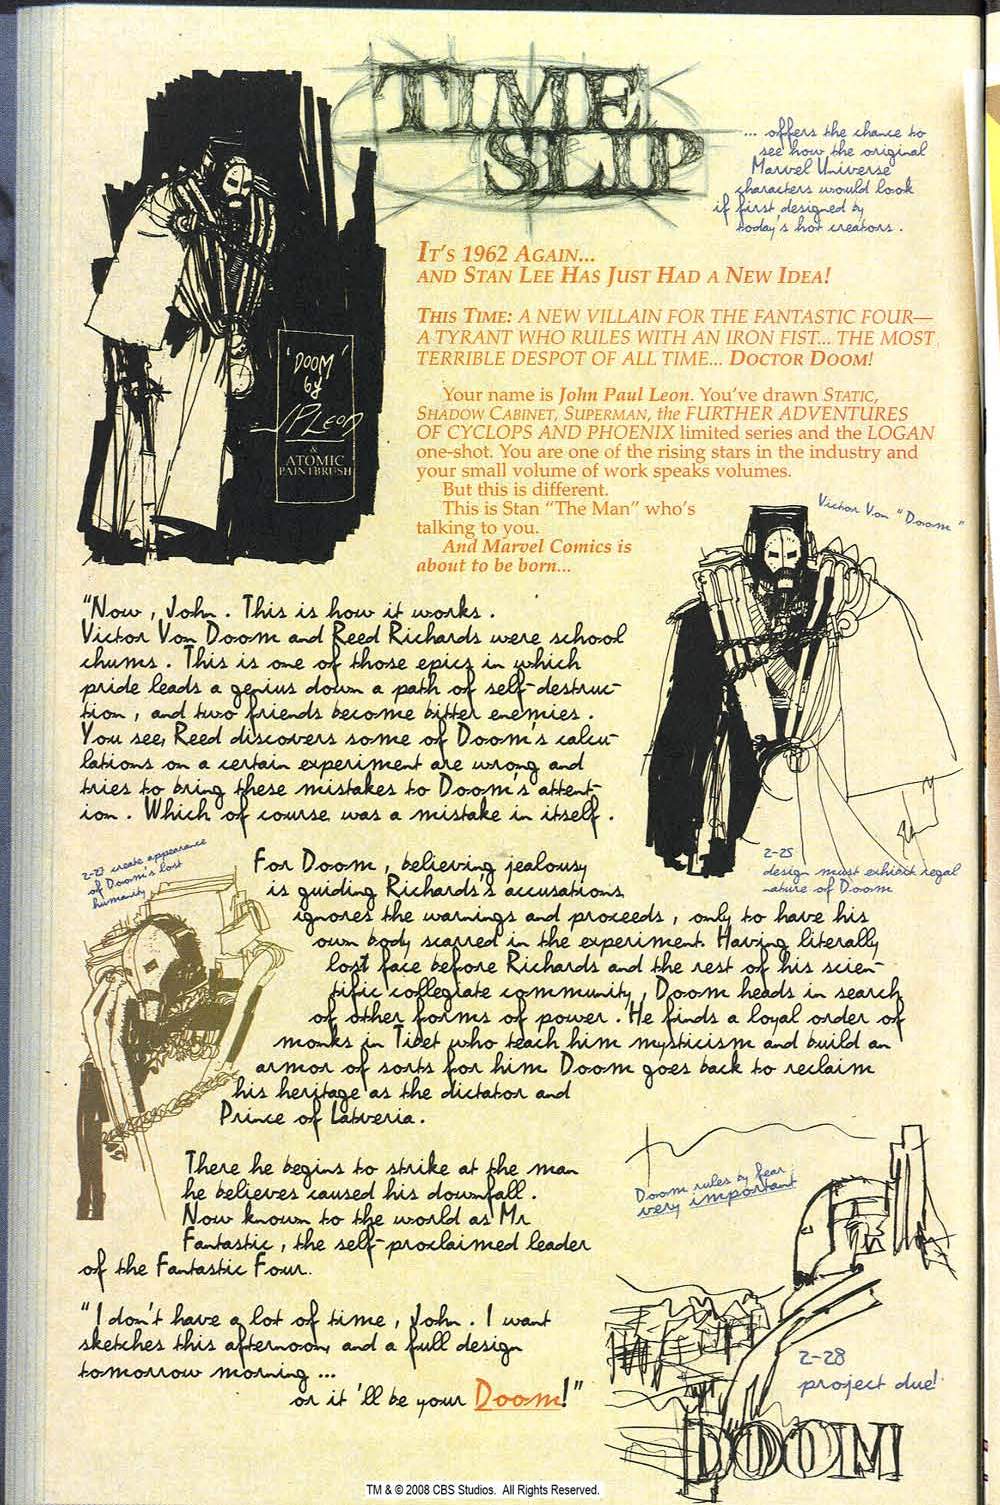 TIME
SLIP
... offers the chance to
see how the original
Marvel Universe
characters would look
if first designed by
today's hot creators.
IT'S 1962 AGAIN...
AND STAN LEE HAS JUST HAD A NEW IDEA!
THIS TIME: A NEW VILLAIN FOR THE FANTASTIC FOUR—
A TYRANT WHO RULES WITH AN IRON FIST... THE MOST
TERRIBLE DESPOT OF ALL TIME... DOCTOR DOOM!
Your name is John Paul Leon. You've drawn STATIC,
SHADOW CABINET, SUPERMAN, the FURTHER ADVENTURES
OF CYCLOPS AND PHOENIX limited series and the LOGAN
one-shot. You are one of the rising stars in the industry and
your small volume of work speaks volumes.
But this is different.
This is Stan "The Man" who's
talking to you.
And Marvel Comics is
about to be born...
'DOOM'
by
JPLeon
&
ATOMIC
PAINTBRUSH
Victor Von "Doom"
"Now, John. This is how it works.
Victor Von Doom and Reed Richards were school
chums. This is one of those epics in which
pride leads a genius down a path of self-destruc-
tion, and two friends become bitter enemies.
You see, Reed discovers some of Doom's calcu-
lations on a certain experiment are wrong and
tries to bring these mistakes to Doom's attent-
ion. Which of course was a mistake in itself.
2-25
design must exhibit regal
nature of Doom
2-27 create appearance
of Doom's lost
humanity
For Doom, believing jealousy
is guiding Richards's accusations,
ignores the warnings and proceeds, only to have his
own body scarred in the experiment. Having literally
lost face before Richards and the rest of his scien-
tific collegiate community, Doom heads in search
of other forms of power. He finds a loyal order of
monks in Tibet who teach him mysticism and build an
armor of sorts for him. Doom goes back to reclaim
his heritage as the dictator and
Prince of Latveria.
There he begins to strike at the man
he believes caused his downfall.
Now known to the world as Mr.
Fantastic, the self-proclaimed leader
of the Fantastic Four.
Doom rules by fear
very important
"I don't have a lot of time, John. I want
sketches this afternoon, and a full design
tomorrow morning...
or it'll be your Doom!"
2-28
project due!
DOOM
TM & © 2008 CBS Studios. All Rights Reserved.